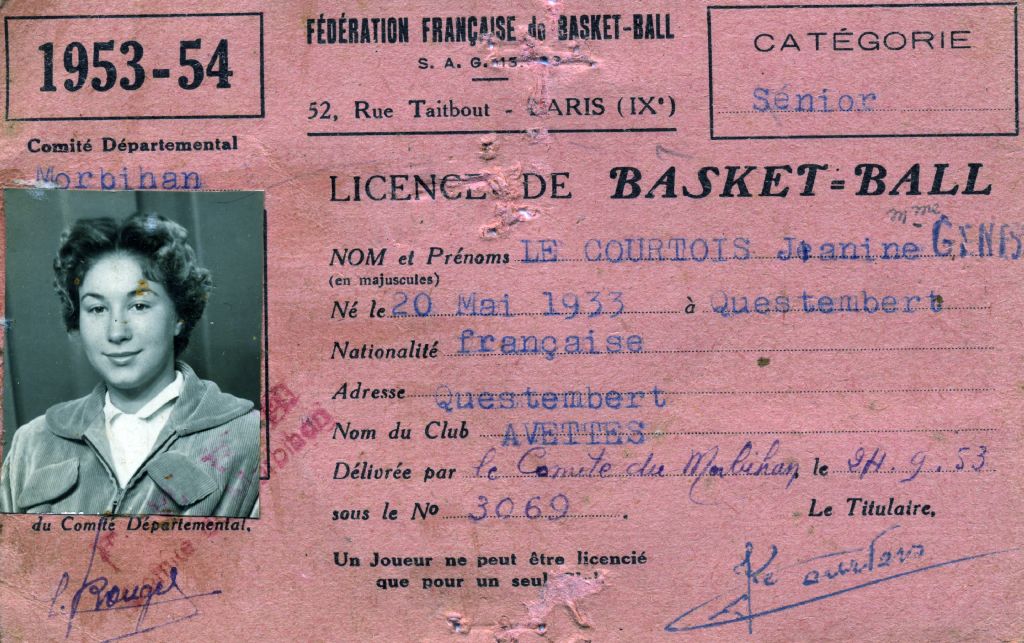 1953-54
FÉDÉRATION FRANÇAISE de BASKET-BALL
S. A. G.
52, Rue Taitbout - PARIS (IXe)
CATÉGORIE
Sénior
Comité Départemental
Morbihan
LICENCE DE BASKET=BALL
NOM et Prénoms LE COURTOIS Jeanine
(en majuscules)
Né le 20 Mai 1933 à Questembert
Nationalité française
Adresse Questembert
Nom du Club AVETTES
Délivrée par le Comite du Morbihan, le 24.9.53
sous le No 3069.
Le Titulaire,
du Comité Départemental,
Un Joueur ne peut être licencié
que pour un seul
Le Courtois